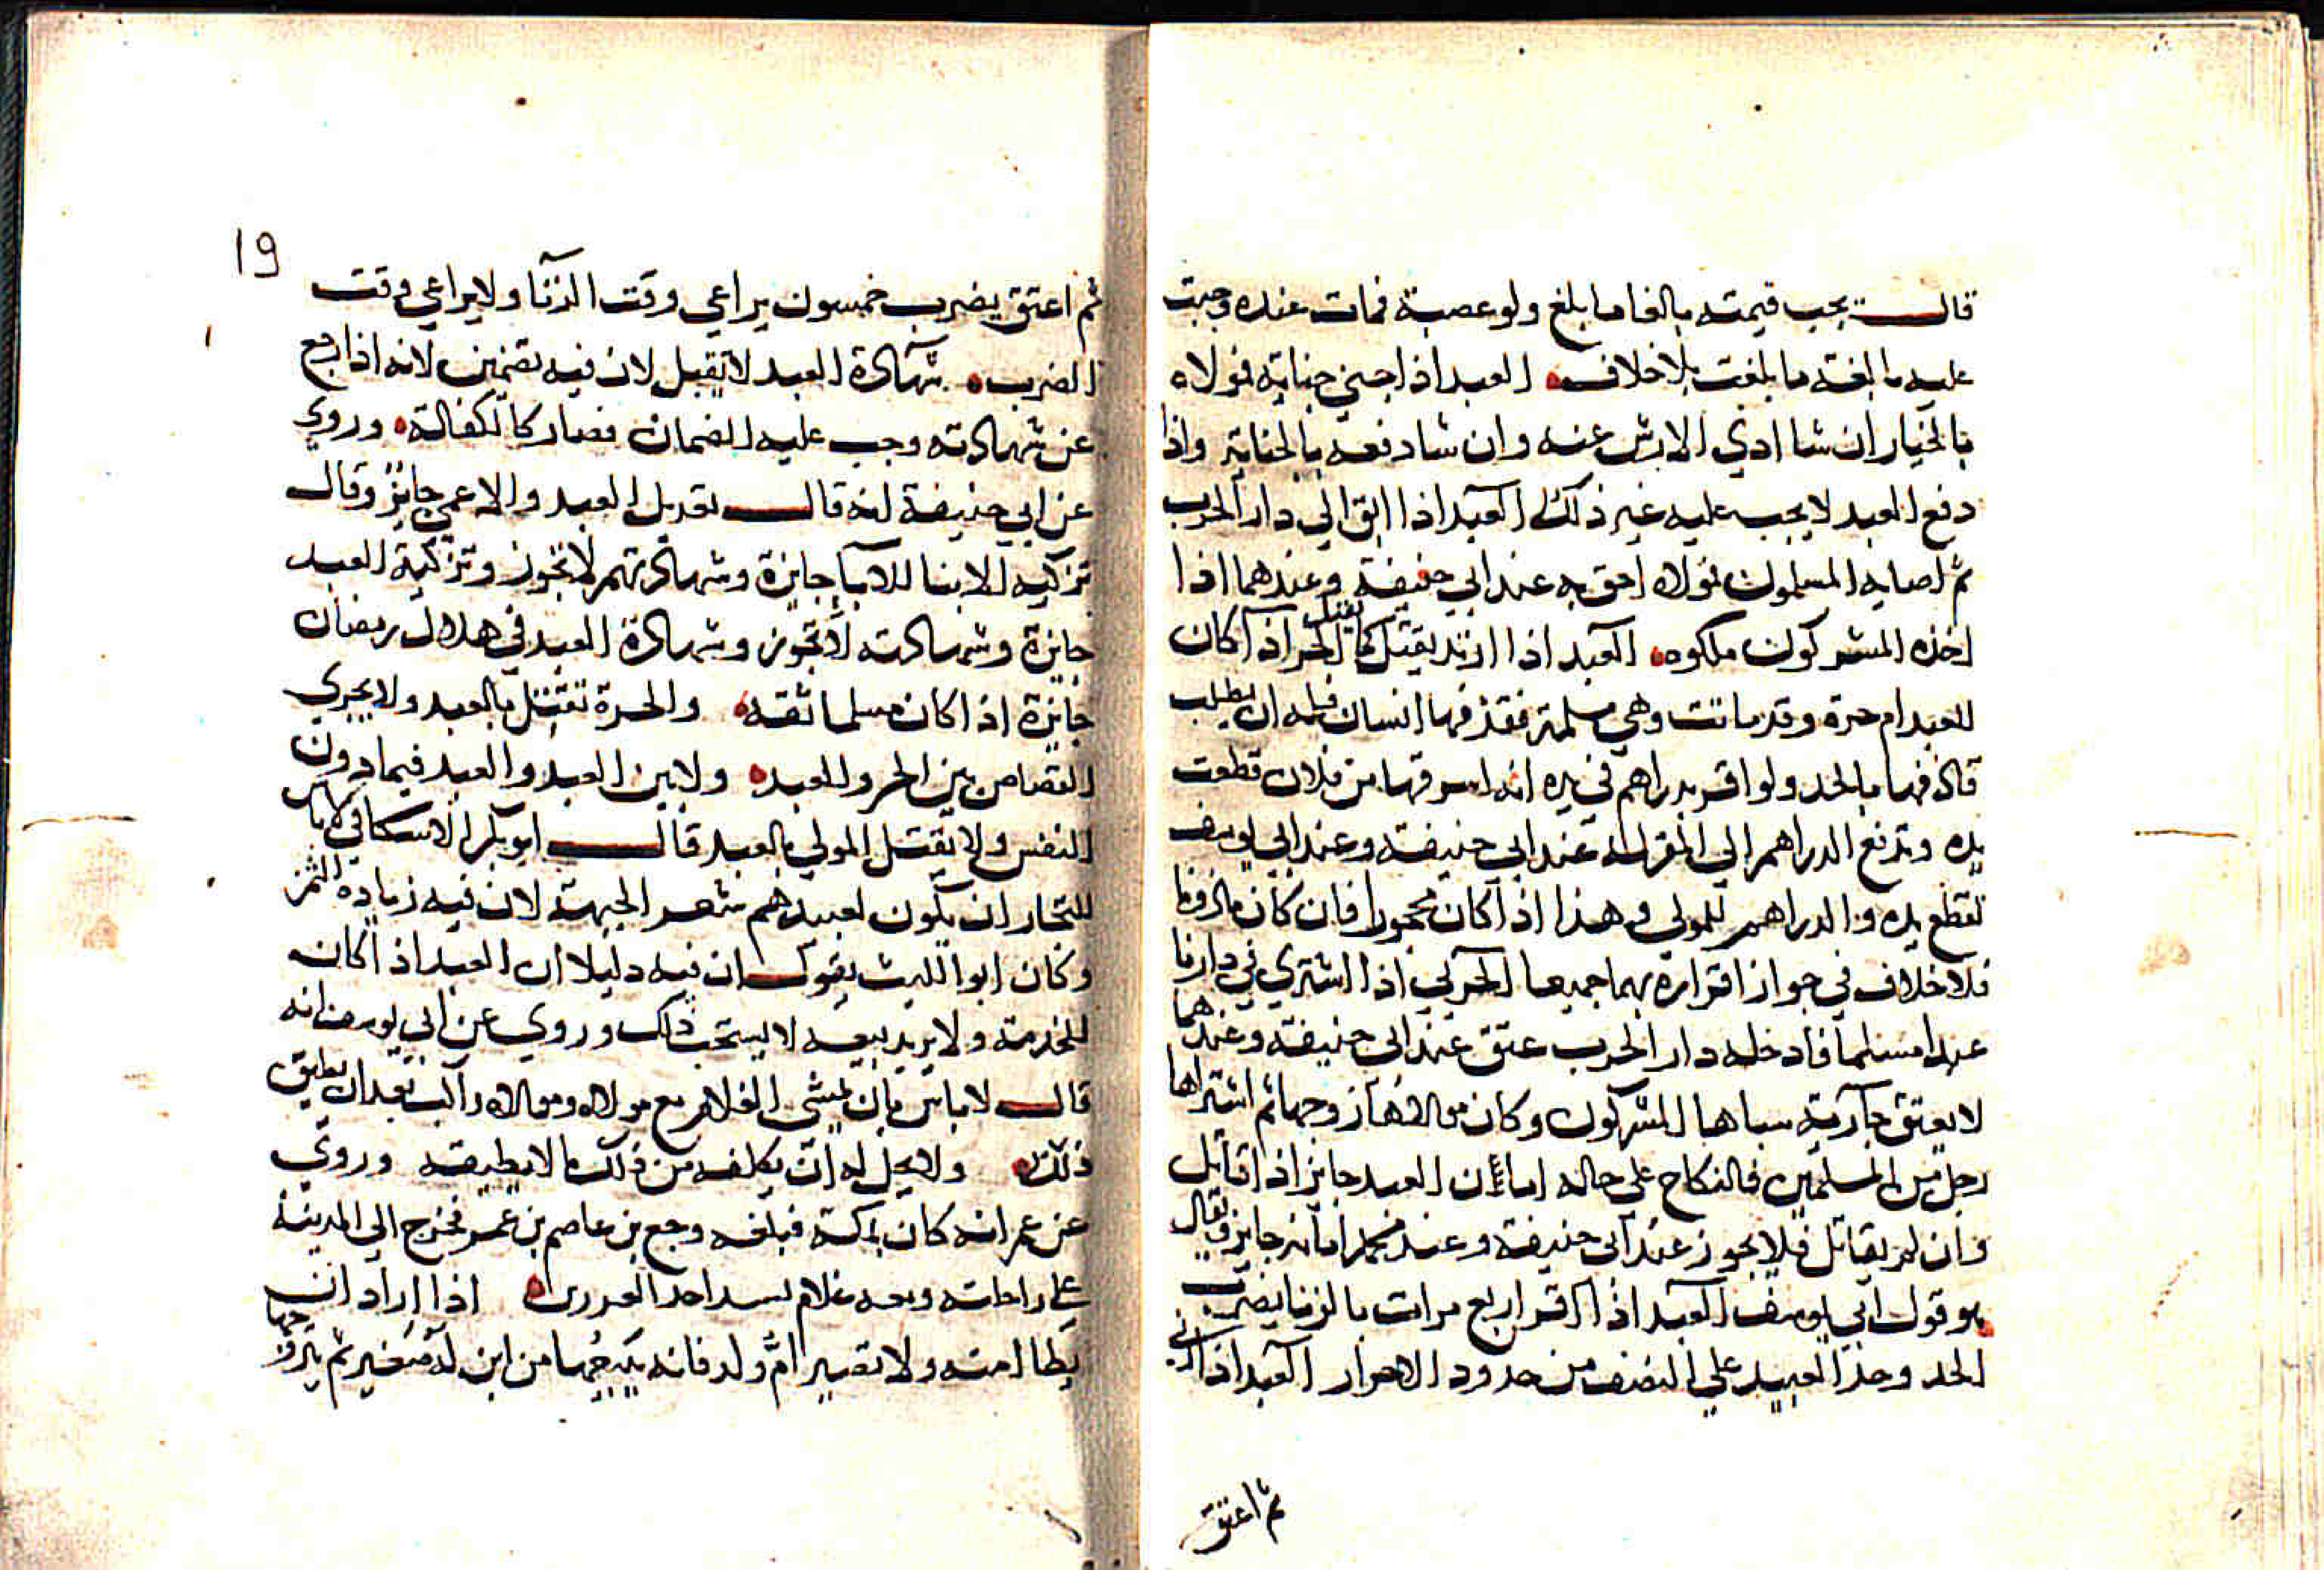 قالــــ تجب قيمته بالغا ما بلغ ولو غصبه فمات عنده وجبت
عليه بالغة ما بلغت بلا خلاف العبد اذا جني جناية فمولاه
بالخيار ان شا ادي الارش عنه وان شا دفعه بالجناية واذا
دفع العبد لا يجب عليه غير ذلك العبد اذا ابق الي دار الحرب
ثم اصابه المسلمون فمولاه احق به عند ابي حنيفة وعندهما اذا
اخذه المشركون ملكوه العبد اذا ارتد يقتل كما يقتل الحر اذا كان
للعبد ام حرة وقد ماتت وهي مسلمة فقذفها انسان فله ان يطلب
قاذفها بالحد ولو اقر بدراهم في يده انه سرقها من فلان قطعت
يده وتدفع الدراهم الي المقر له عند ابي حنيفة وعند ابي يوسف
تقطع يده والدراهم للمولي وهذا اذا كان محجورا فان كان ماذونا
فلا خلاف في جواز اقراره بهما جميعا الحربي اذا اشتري في دارنا
عبدا مسلما فادخله دار الحرب عتق عند ابي حنيفة وعندهما
لا يعتق جارية سباها المشركون وكان زوجها ثم اشتراها
رجل من المسلمين فالنكاح علي حاله امان العبد جايز اذا قاتل
وان لم يقاتل فلا يجوز عند ابي حنيفة وعند محمد امانه جايز ويقال
هو قول ابي يوسف العبد اذا اقر اربع مرات بالزنا يضرب
الحد وحد العبيد علي النصف من حدود الاحرار العبد اذا زني
ثم اعتق
19
ثم اعتق يضرب خمسون يراعي وقت الزنا ولا يراعي وقت
الضرب شهادة العبد لا تقبل لان فيه تضمين لانه اذا رجع
عن شهادته وجب عليه الضمان فصار كالكفالة وروي
عن ابي حنيفة انه قالــــ تعديل العبد والاعمي جايز وقال
تزكية الابنا للابا جايزة وشهادتهم لا تجوز وتزكية العبد
جايزة وشهادته لا تجوز وشهادة العبد في هلال رمضان
جايزة اذا كان مسلما ثقة والحرة تقتل بالعبد ولا يجري
القصاص بين الحر والعبد ولا بين العبد والعبد فيما دون
النفس ولا يقتل المولي بالعبد قالــــ ابو بكر الاسكافي لا باس
للتجار ان يكون لعبيدهم شعر الجبهة لان فيه زيادة الثمن
وكان ابو الليث يقول ان فيه دليلا ان العبد اذا كان
للخدمة ولا يريد بيعه لا يستحب ذلك وروي عن ابي يوسف انه
قالــ لا باس بان يمشي الغلام مع مولاه ومولاه راكب بعد ان يطيق
ذلك ولا يحل له ان يكلفه من ذلك ما لا يطيقه وروي
عن عمر انه كان بمكة فبلغه وجع بن عاصم بن عمر فخرج الي المدينة
علي راحلته ومعه غلام اذا اراد ان
يطا امته ولا تصير ام ولد فانه يبيعها من ابن له صغير ثم يتزوجها